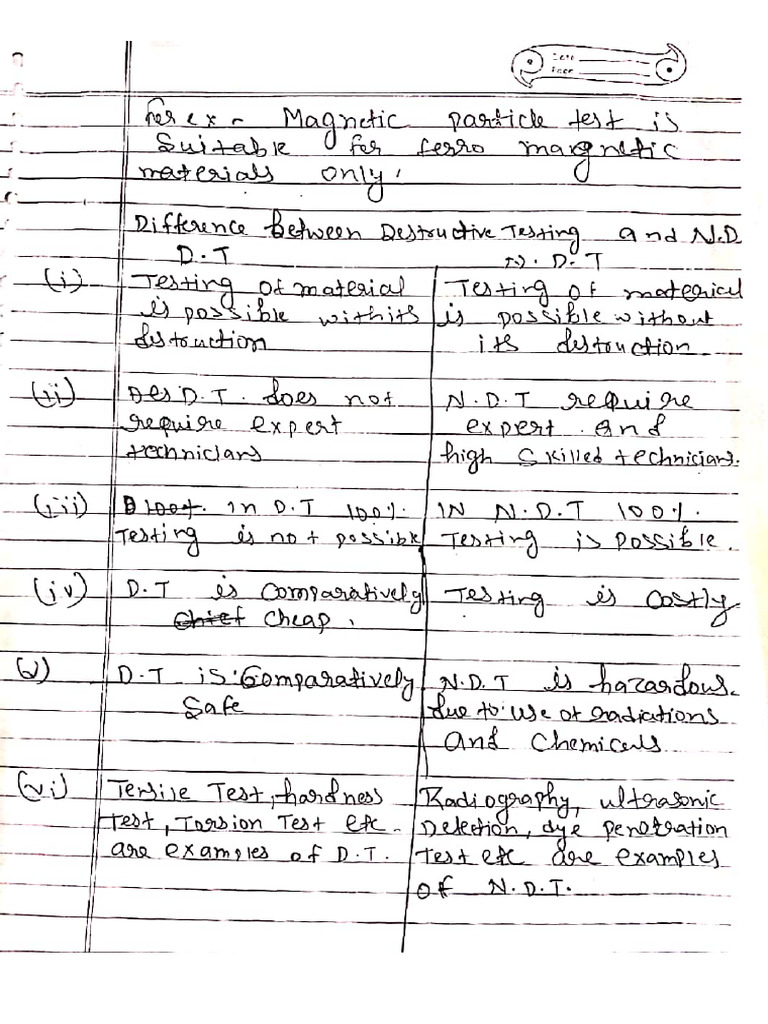 For ex - Magnetic particle test is
Suitable for ferro magnetic
materials only.
Difference between Destructive Testing and N.D.
D.T
N.D.T
(i) Testing of material
is possible with its
distruction
Testing of material
is possible without
its distruction
(ii) Des D.T. does not
require expert
technicians
N.D.T require
expert and
high skilled technicians.
(iii) In D.T 100%.
Testing is not possible
IN N.D.T 100%.
Testing is possible.
(iv) D.T is comparatively
cheap.
Testing is costly
(v) D.T is comparatively
Safe
N.D.T is hazardous
due to use of radiations
and chemicals
(vi) Tensile Test, hardness
test, Torsion Test etc.
are examples of D.T.
Radiography, ultrasonic
Detection, dye penetration
Test etc are examples
of N.D.T.